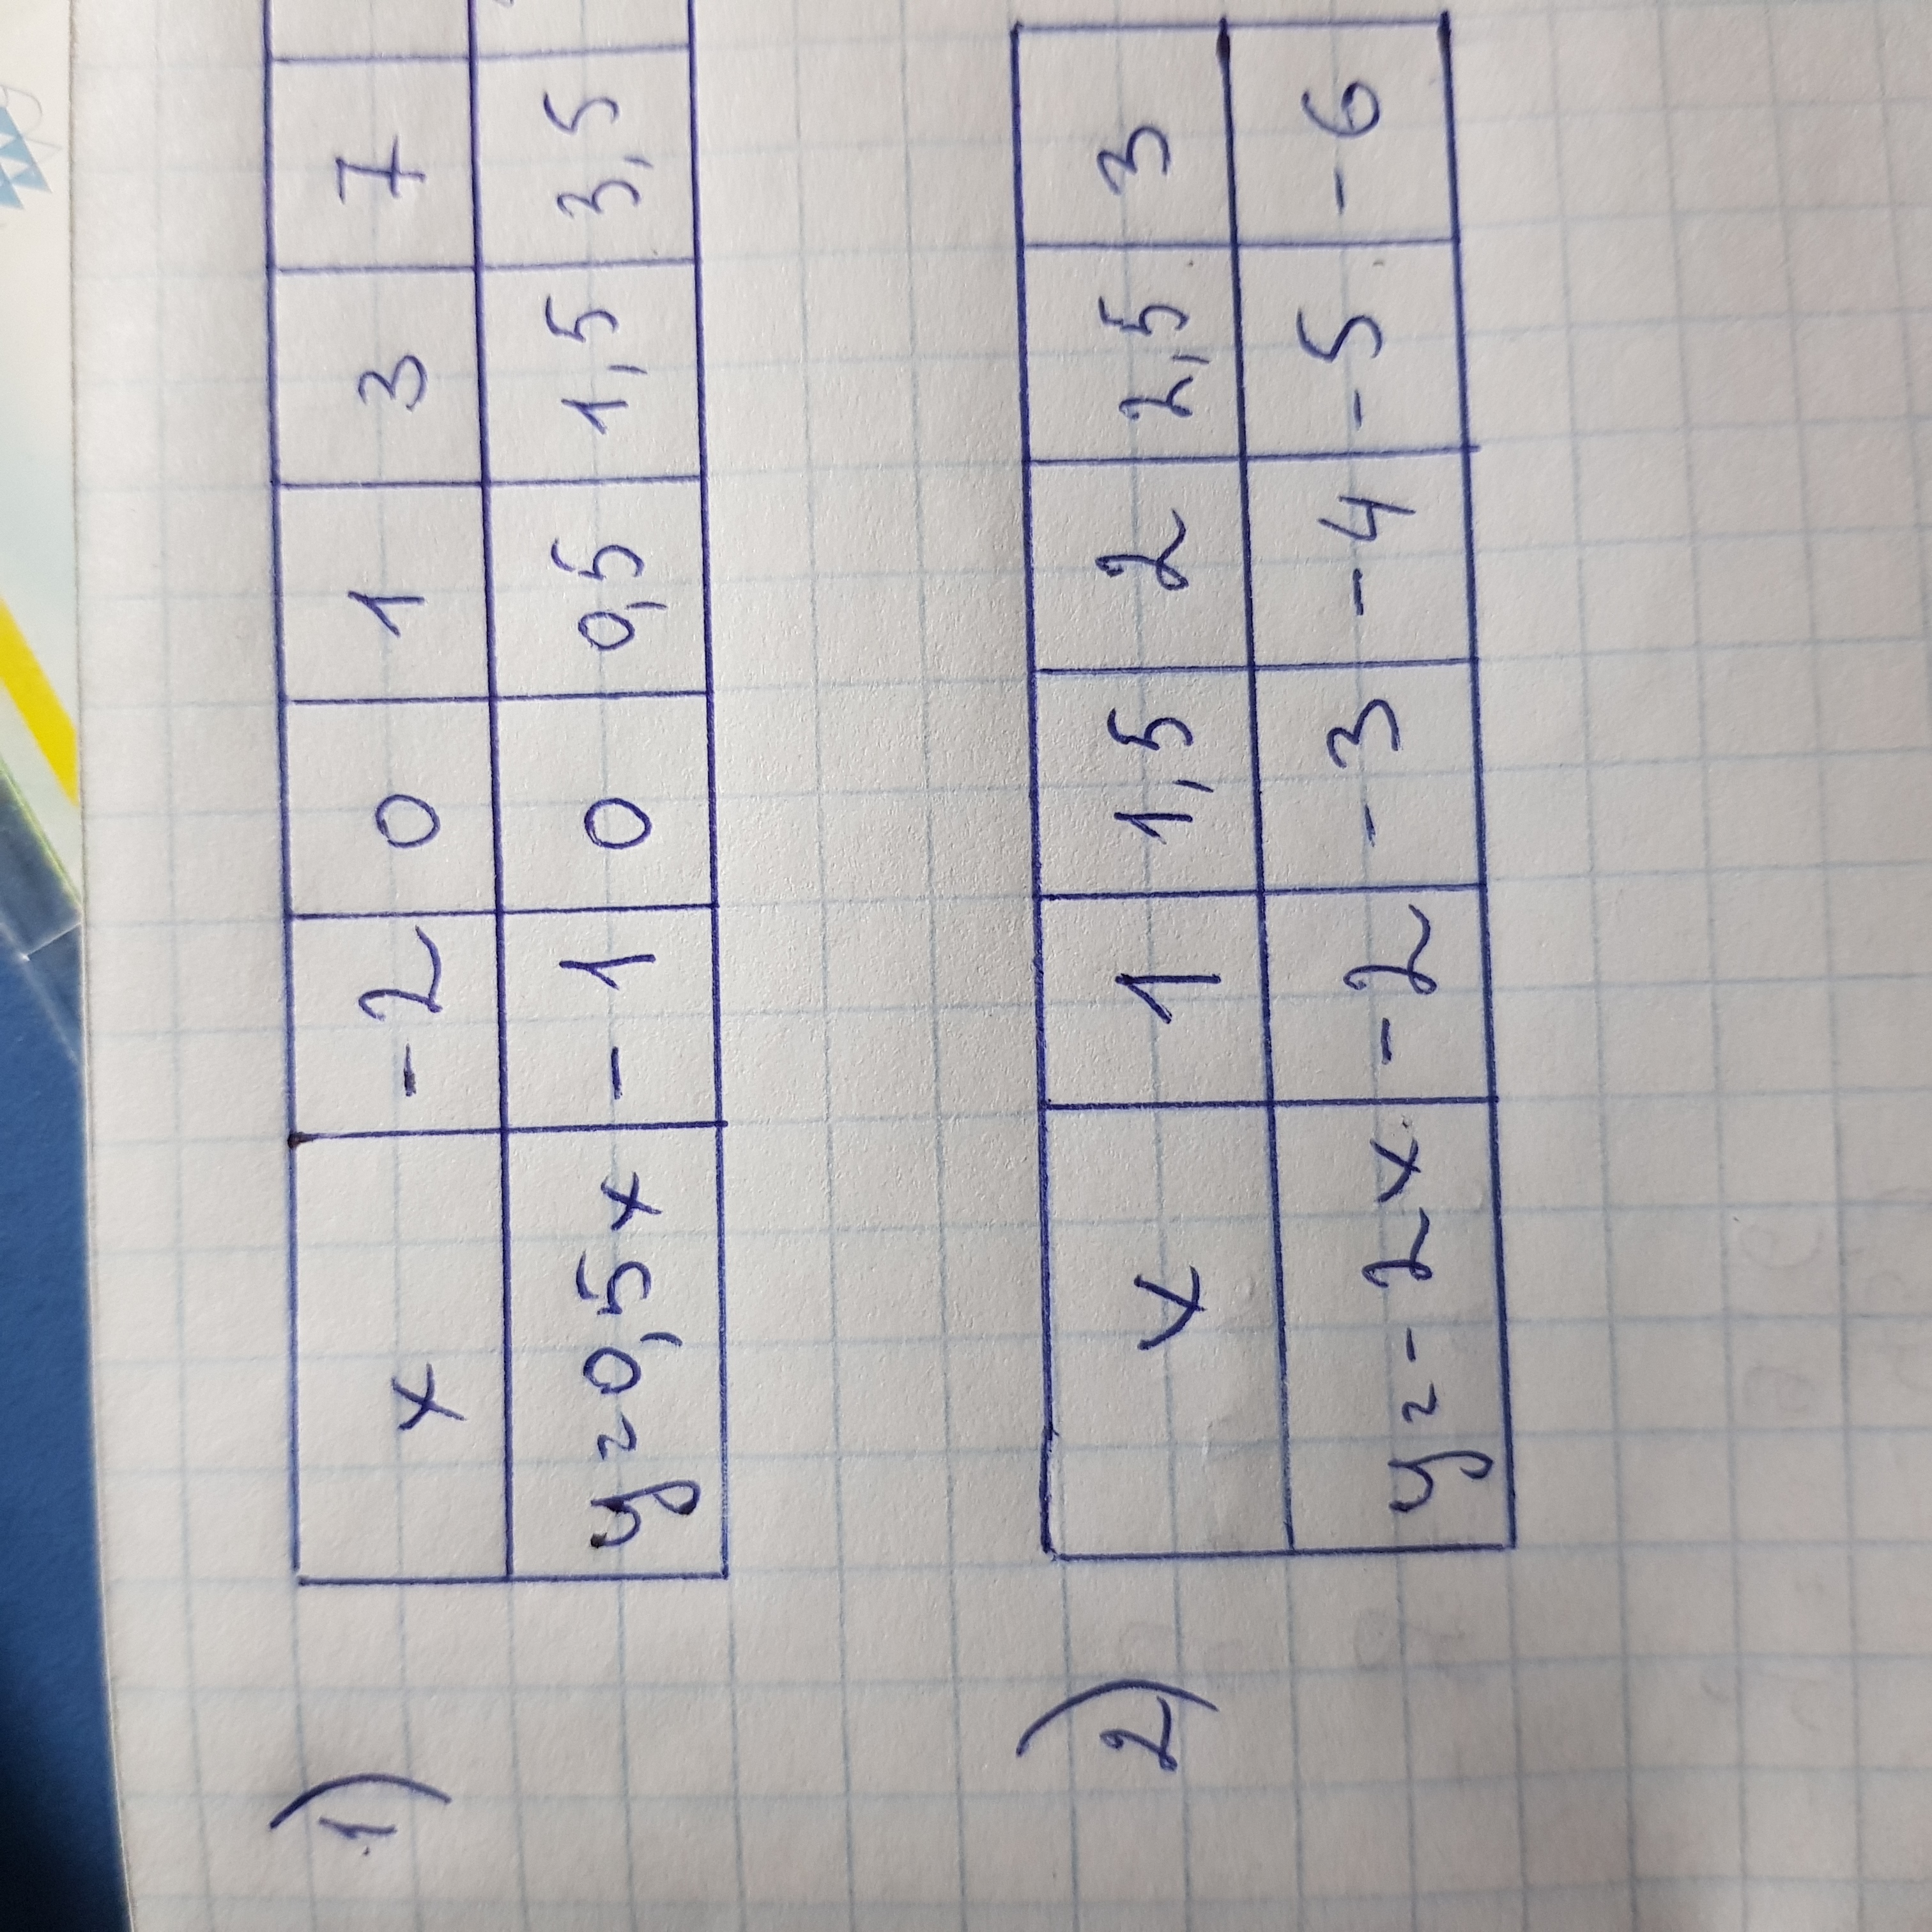 1)
x -2 0 1 3 7
y=0,5x -1 0 0,5 1,5 3,5
2)
x 1 1,5 2 2,5 3
y=-2x -2 -3 -4 -5 -6